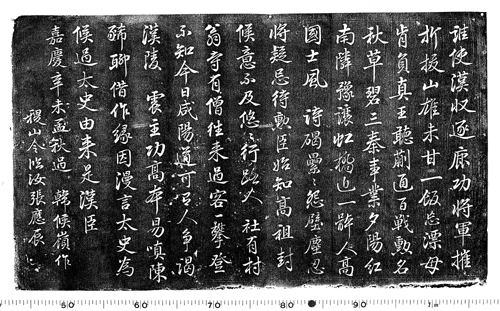 誰使漢收逐鹿功將軍推
折拔山雄未甘一飯忘漂母
肯負真王聽蒯通百戰勲名
秋草碧三秦事業夕陽紅
南隣豫讓虹橋近一 人高
國士風 詩碣壘怨壁塵忍
將疑忌待勲臣始知高祖封
候意不及悠行路人 社有村
翁寺有僧往來過客一攀登
不知今日咸陽道可有人爭謁
漢陵 震主功高本易嗔陳
豨聊借作緣因漫言太史為
候過太史由来是漢臣
嘉慶辛未孟秋過 韓候嶺作
稷山令臨汝張應辰
50 60 70 80 90 1m